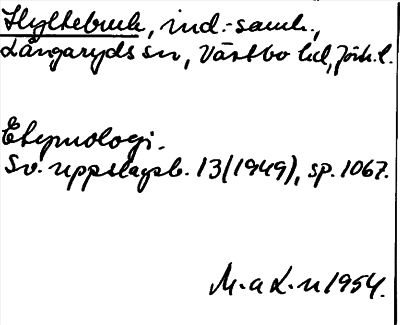 Hyltebruk, ind.-samh.,
Långaryds sn, Västbo hd, Jönk. l.
Etymologi.
Sv. uppslagsb. 13 (1949), sp. 1067.
M. a L-n 1954.